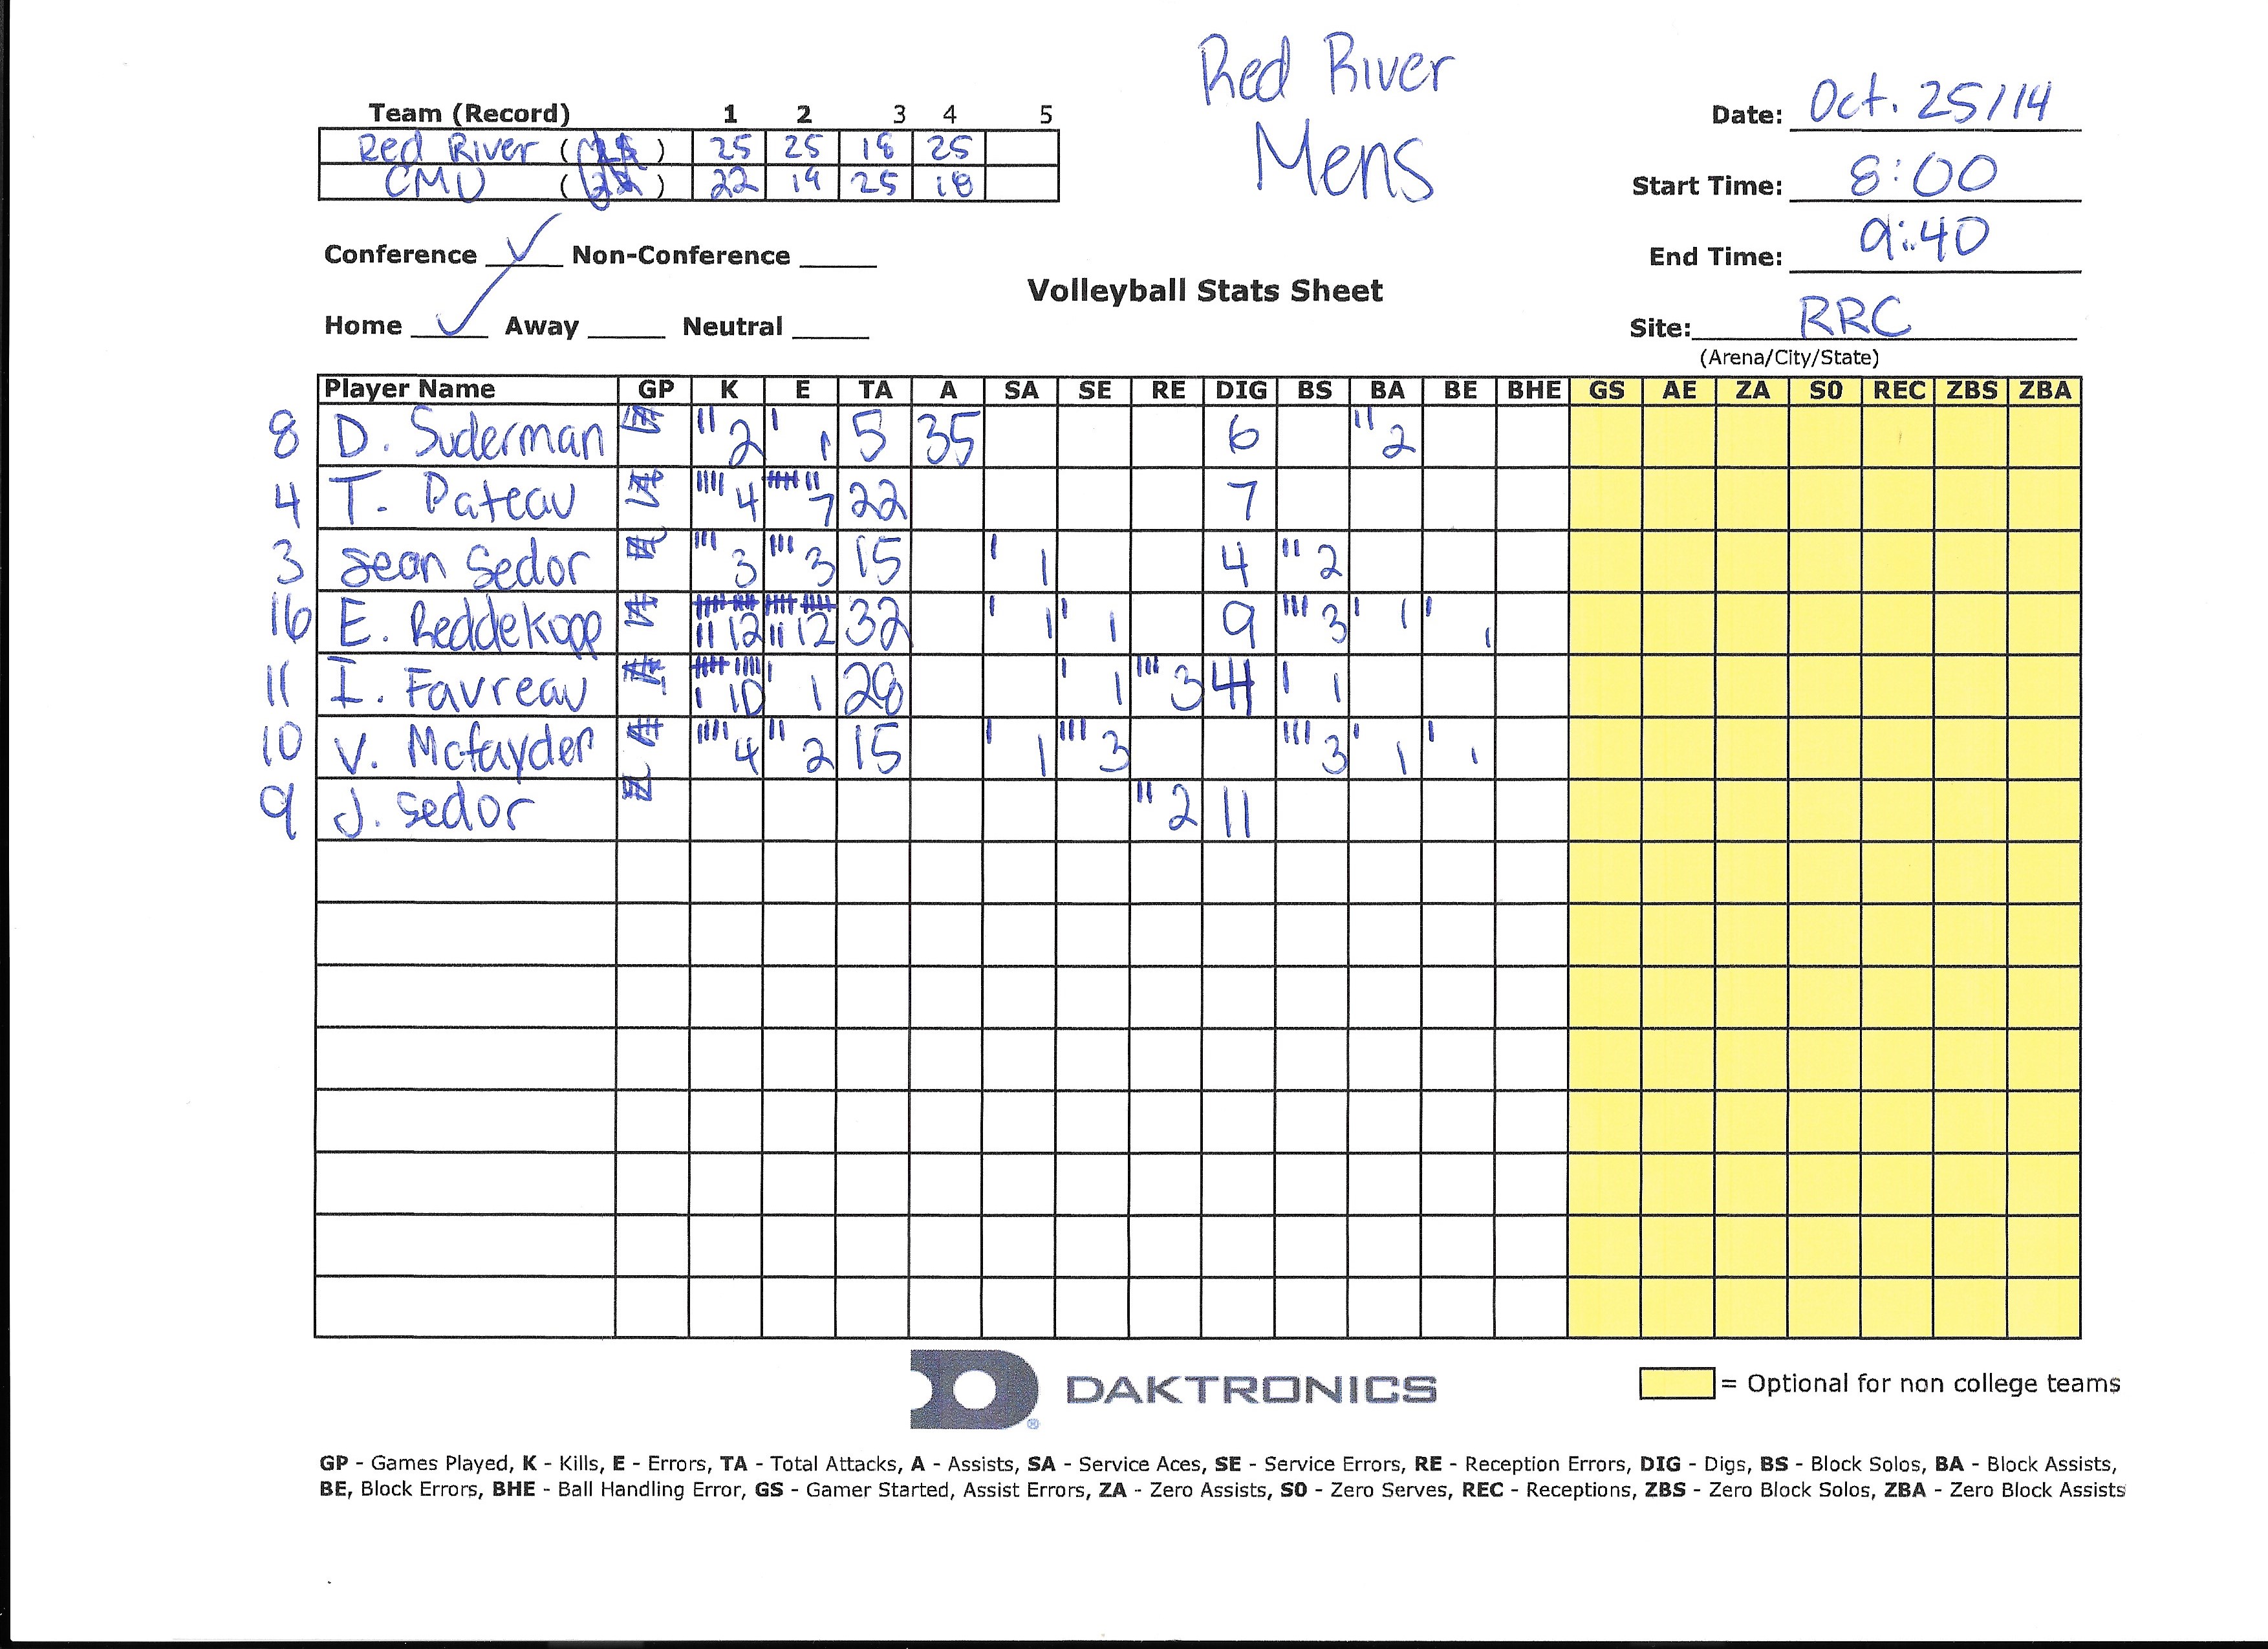 Red River
Mens
Team (Record) 1 2 3 4 5
Red River ( ) 25 25 18 25
CMU ( ) 22 19 25 18
Date: Oct. 25/14
Start Time: 8:00
End Time: 9:40
Conference ✓ Non-Conference
Volleyball Stats Sheet
Home ✓ Away Neutral
Site: RRC
(Arena/City/State)
Player Name GP K E TA A SA SE RE DIG BS BA BE BHE GS AE ZA S0 REC ZBS ZBA
8 D. Suderman 2 1 5 35 6 2
4 T. Pateau 4 7 22 7
3 Sean Sedor 3 3 15 1 4 2
16 E. Reddekopp 12 12 32 1 1 9 3 1 1
11 I. Favreau 10 1 28 1 3 4 1
10 V. Mcfayden 4 2 15 1 3 3 1 1
9 J. Sedor 2 11
DAKTRONICS
= Optional for non college teams
GP - Games Played, K - Kills, E - Errors, TA - Total Attacks, A - Assists, SA - Service Aces, SE - Service Errors, RE - Reception Errors, DIG - Digs, BS - Block Solos, BA - Block Assists,
BE, Block Errors, BHE - Ball Handling Error, GS - Gamer Started, Assist Errors, ZA - Zero Assists, S0 - Zero Serves, REC - Receptions, ZBS - Zero Block Solos, ZBA - Zero Block Assists